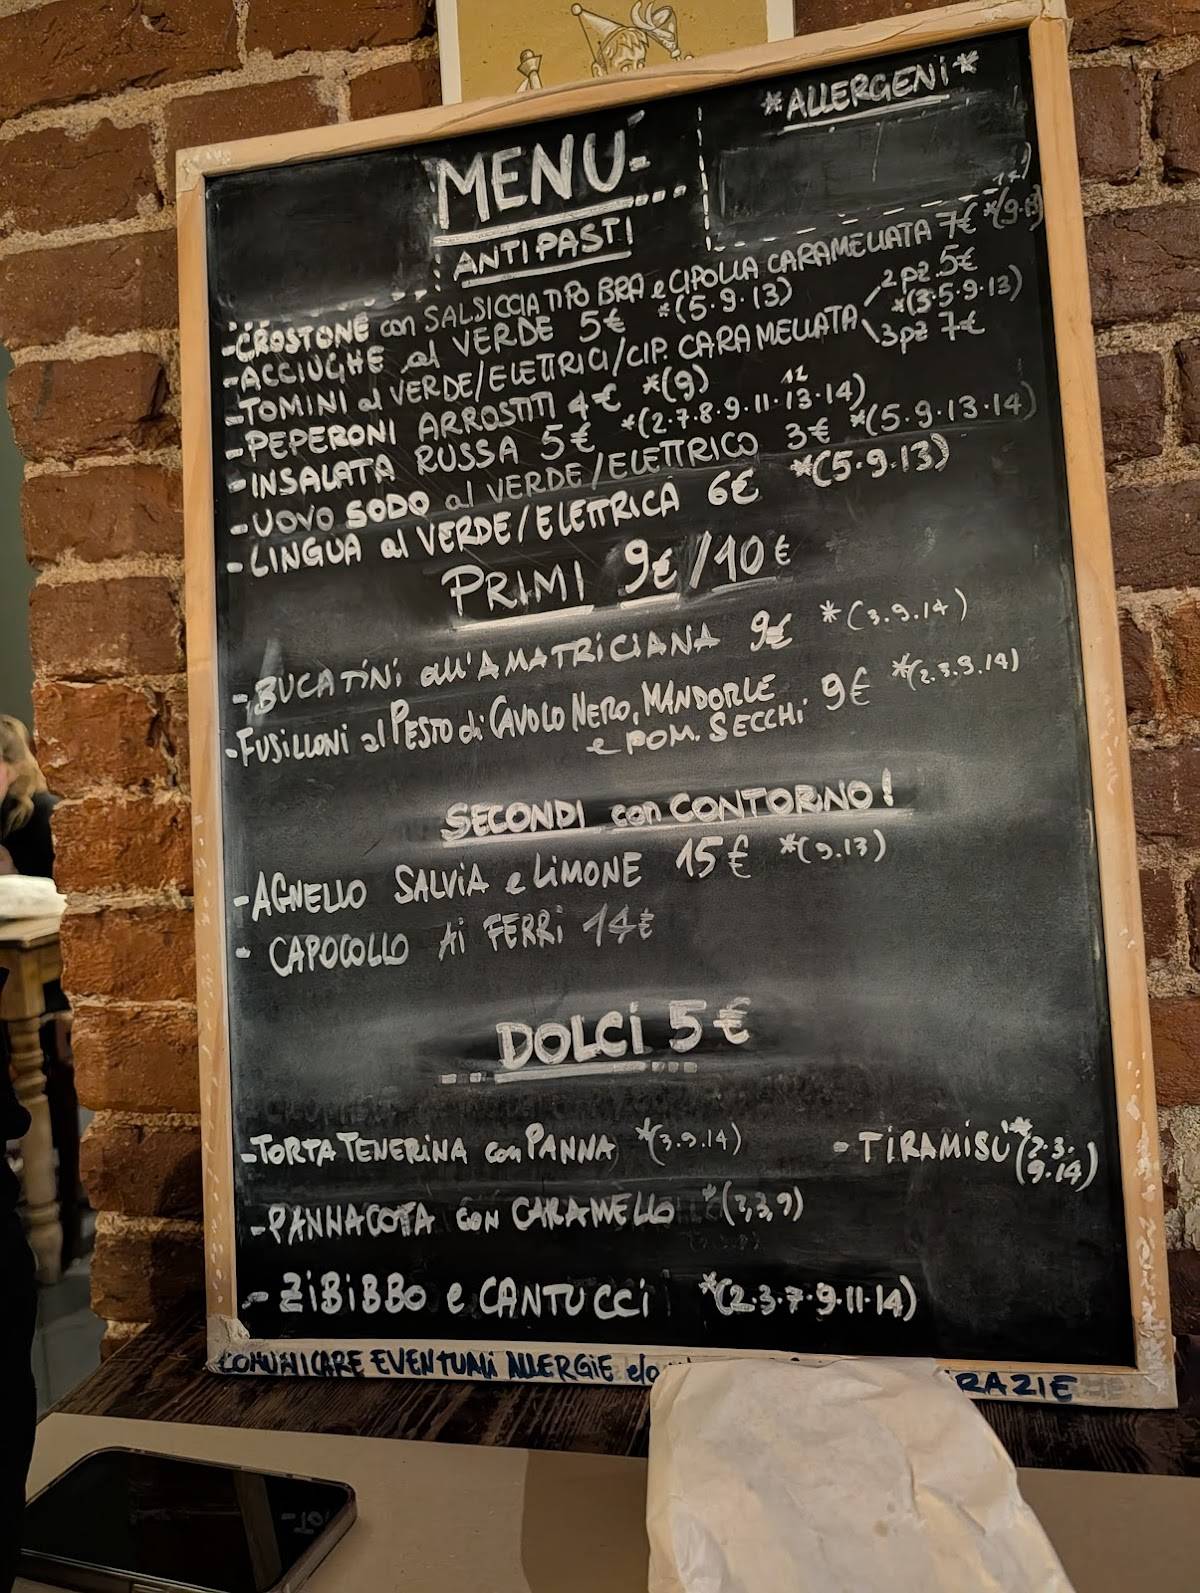 *ALLERGENI*
MENU'
ANTIPASTI
-CROSTONE con SALSICCIA TIPO BRA e CIPOLLA CARAMELLATA 7€
-ACCIUGHE al VERDE 5€ *(5.9.13)
-TOMINI al VERDE/ELETTRICI/CIP. CARAMELLATA 2pz.5€ *(3.5.9.13)
3pz 7€
-PEPERONI ARROSTITI 4€ *(9)
12
-INSALATA RUSSA 5€ *(2.7.8.9.11.13.14)
-UOVO SODO al VERDE/ELETTRICO 3€ *(5.9.13.14)
-LINGUA al VERDE/ELETTRICA 6€ *(5.9.13)
PRIMI 9€/10€
-BUCATINI all'AMATRICIANA 9€ *(3.9.14)
-FUSILLONI al PESTO di CAVOLO NERO, MANDORLE 9€ *(2.3.9.14)
e POM. SECCHI
SECONDI con CONTORNO!
-AGNELLO SALVIA e LIMONE 15€ *(9.13)
- CAPOCOLLO Ai FERRi 14€
DOLCi 5€
-TORTA TENERINA con PANNA *(3.9.14)
-TIRAMISÙ *(2.3.
9.14)
-PANNACOTA con CARAMELLO
-ZIBIBBO e CANTUCCI *(2.3.7.9.11.14)
COMUNICARE EVENTUALI ALLERGIE e/o
RAZIE